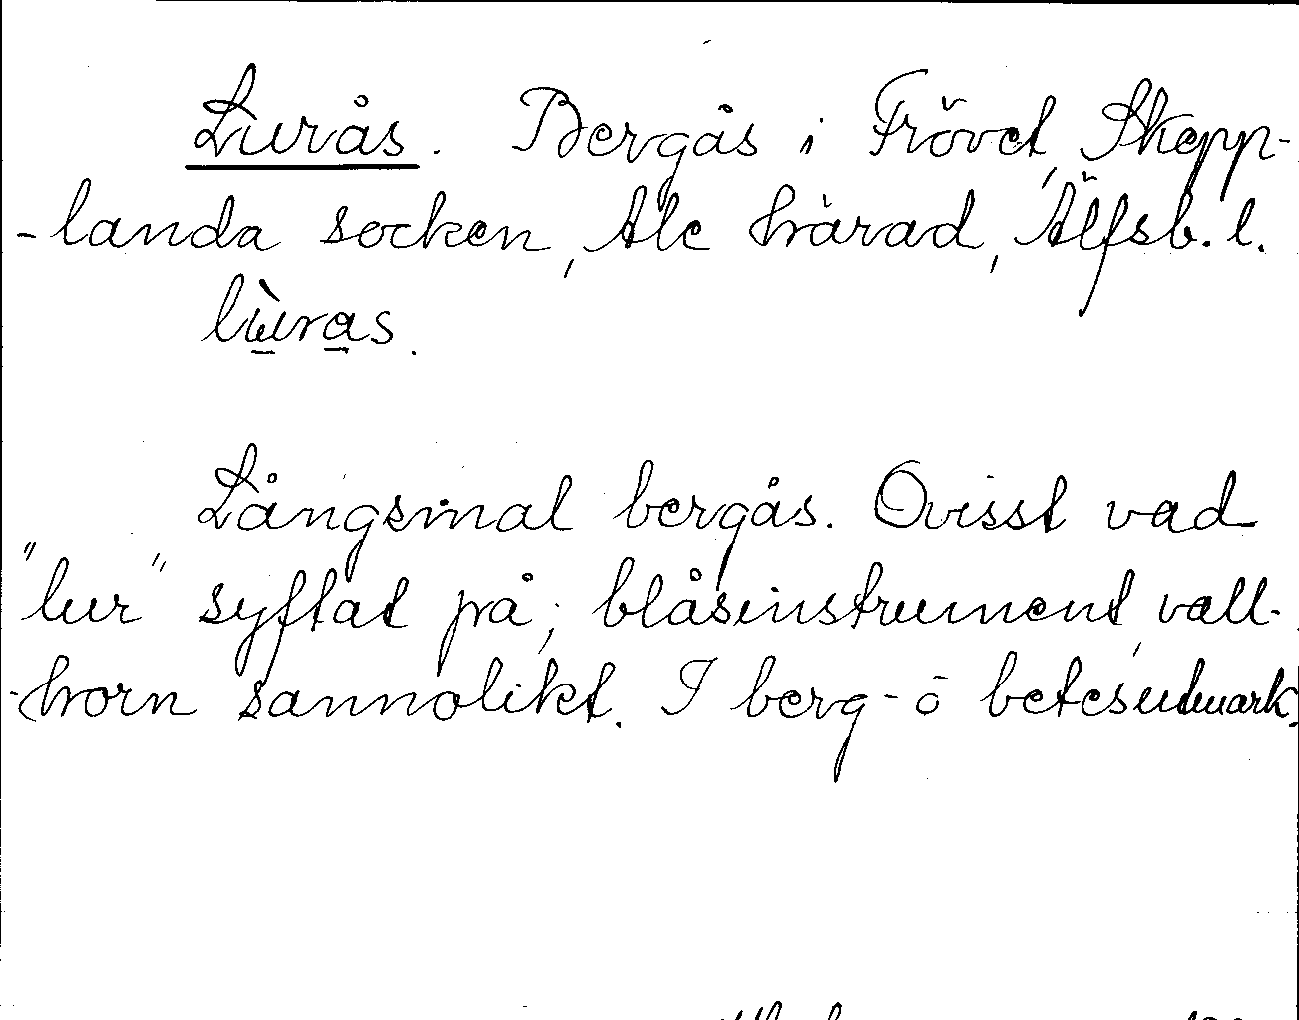 Lurås. Bergås i Frövet, Skepp-
-landa socken, Ale härad, Älfsb. l.
lùras.
Långsmal bergås. Ovisst vad
"lur" syftat på; blåsinstrument, vall-
-horn sannolikt. I berg- o betesutmark.